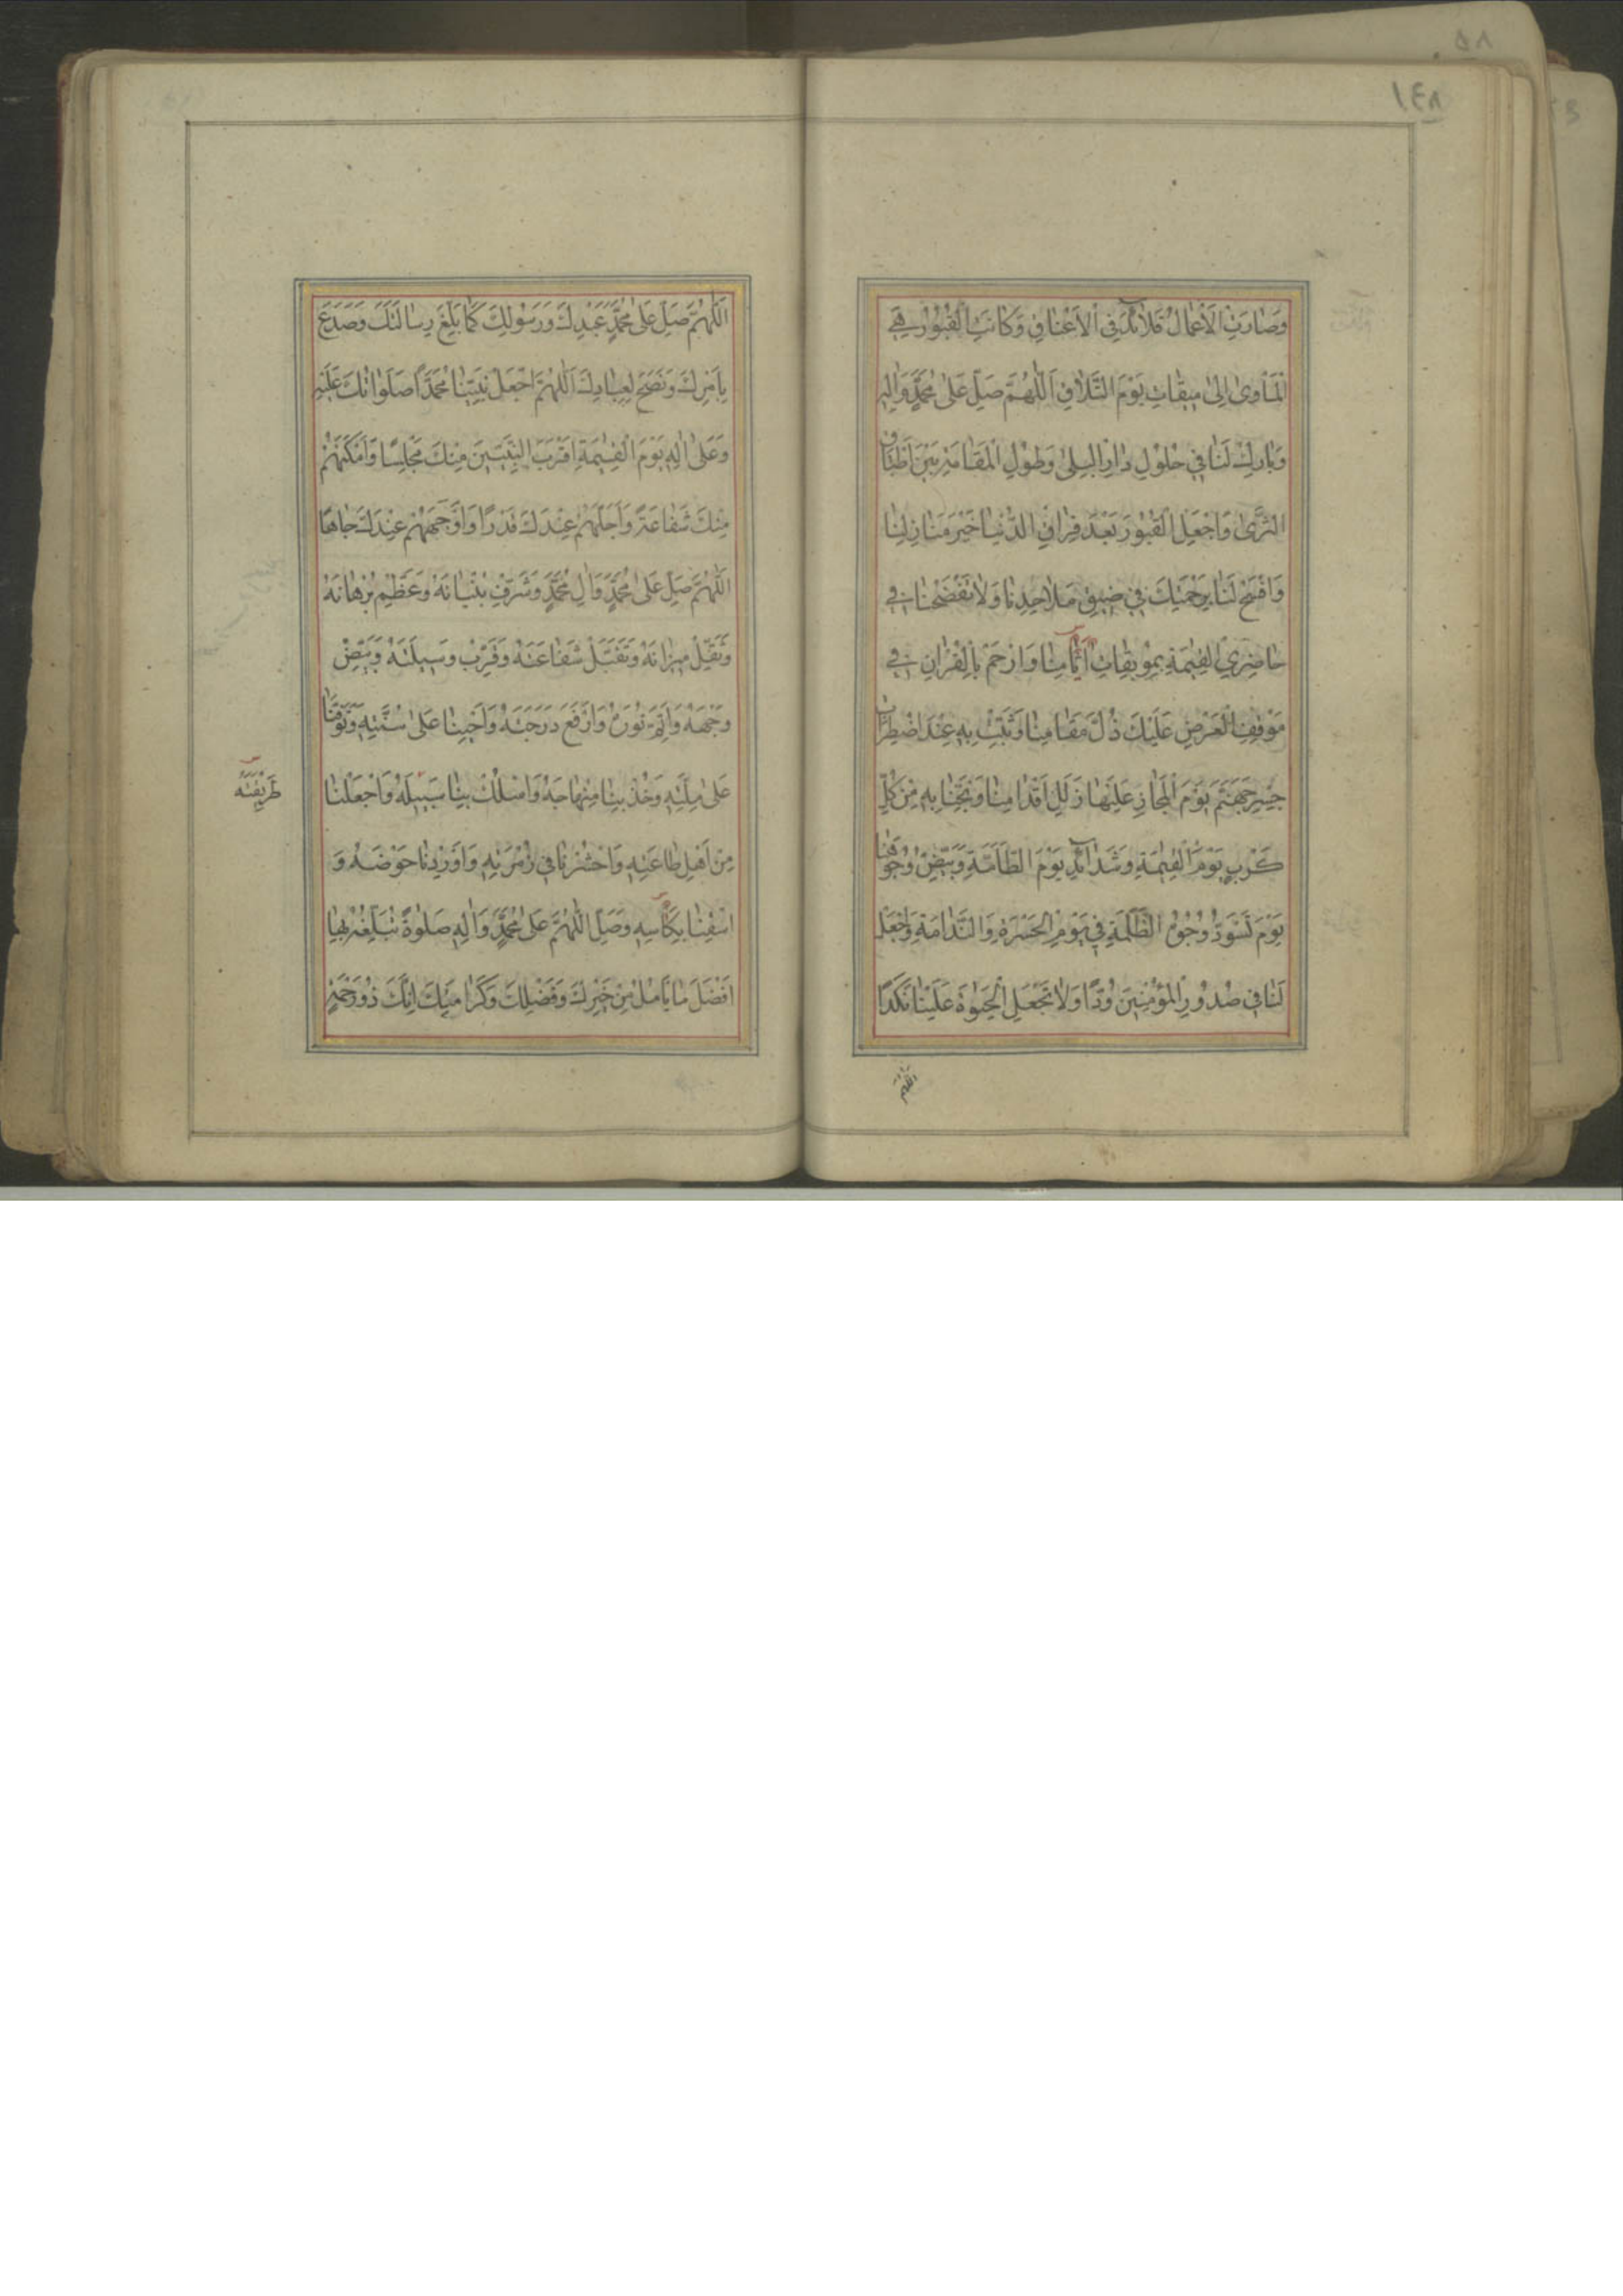 ١٤٨
وَصَارَتِ الْأَعْمَالُ قَلَائِدَ فِي الْأَعْنَاقِ وَكَانَتِ الْقُبُورُ هِيَ
الْمَأْوَىٰ إِلَىٰ مِيقَاتِ يَوْمِ التَّلَاقِ اَللّٰهُمَّ صَلِّ عَلَىٰ مُحَمَّدٍ وَاٰلِهِ
وَبَارِكْ لَنَا فِي حُلُولِ دَارِ الْبِلَىٰ وَطُولِ الْمُقَامَةِ بَيْنَ أَطْبَاقِ
الثَّرَىٰ وَاجْعَلِ الْقُبُورَ بَعْدَ فِرَاقِ الدُّنْيَا خَيْرَ مَنَازِلِنَا
وَافْسَحْ لَنَا بِرَحْمَتِكَ فِي ضِيقِ مَلَاحِدِنَا وَلَا تَفْضَحْنَا فِي
حَاضِرِي الْقِيٰمَةِ بِمُوبِقَاتِ اٰثَامِنَا وَارْحَمْ بِالْقُرْاٰنِ فِي
مَوْقِفِ الْعَرْضِ عَلَيْكَ ذُلَّ مَقَامِنَا وَثَبِّتْ بِهِ عِنْدَ اضْطِرَابِ
جِسْرِ جَهَنَّمَ يَوْمَ الْمَجَازِ عَلَيْهَا زَلَلَ أَقْدَامِنَا وَنَجِّنَا بِهِ مِنْ كُلِّ
كَرْبٍ يَوْمَ الْقِيٰمَةِ وَشَدَائِدِ يَوْمِ الطَّامَّةِ وَبَيِّضْ وُجُوهَنَا
يَوْمَ تَسْوَدُّ وُجُوهُ الظَّلَمَةِ فِي يَوْمِ الْحَسْرَةِ وَالنَّدَامَةِ وَاجْعَلْ
لَنَا فِي صُدُورِ الْمُؤْمِنِينَ وُدًّا وَلَا تَجْعَلِ الْحَيٰوةَ عَلَيْنَا نَكَدًا
اللّٰهُمَّ
اَللّٰهُمَّ صَلِّ عَلَىٰ مُحَمَّدٍ عَبْدِكَ وَرَسُولِكَ كَمَا بَلَّغَ رِسَالَتَكَ وَصَدَعَ
بِأَمْرِكَ وَنَصَحَ لِعِبَادِكَ اَللّٰهُمَّ اجْعَلْ نَبِيَّنَا مُحَمَّدًا صَلَوَاتُكَ عَلَيْهِ
وَعَلَىٰ اٰلِهِ يَوْمَ الْقِيٰمَةِ أَقْرَبَ النَّبِيِّينَ مِنْكَ مَجْلِسًا وَأَمْكَنَهُمْ
مِنْكَ شَفَاعَةً وَأَجَلَّهُمْ عِنْدَكَ قَدْرًا وَأَوْجَهَهُمْ عِنْدَكَ جَاهًا
اَللّٰهُمَّ صَلِّ عَلَىٰ مُحَمَّدٍ وَاٰلِ مُحَمَّدٍ وَشَرِّفْ بُنْيَانَهُ وَعَظِّمْ بُرْهَانَهُ
وَثَقِّلْ مِيزَانَهُ وَتَقَبَّلْ شَفَاعَتَهُ وَقَرِّبْ وَسِيلَتَهُ وَبَيِّضْ
وَجْهَهُ وَأَتِمَّ نُورَهُ وَارْفَعْ دَرَجَتَهُ وَأَحْيِنَا عَلَىٰ سُنَّتِهِ وَتَوَفَّنَا
عَلَىٰ مِلَّتِهِ وَخُذْ بِنَا مِنْهَاجَهُ وَاسْلُكْ بِنَا سَبِيلَهُ وَاجْعَلْنَا
طَرِيقَتَهُ
مِنْ أَهْلِ طَاعَتِهِ وَاحْشُرْنَا فِي زُمْرَتِهِ وَأَوْرِدْنَا حَوْضَهُ وَ
اسْقِنَا بِكَأْسِهِ وَصَلِّ اللّٰهُمَّ عَلَىٰ مُحَمَّدٍ وَاٰلِهِ صَلٰوةً تُبَلِّغُهُ بِهَا
أَفْضَلَ مَا يَأْمُلُ مِنْ خَيْرِكَ وَفَضْلِكَ وَكَرَامَتِكَ إِنَّكَ ذُو رَحْمَةٍ